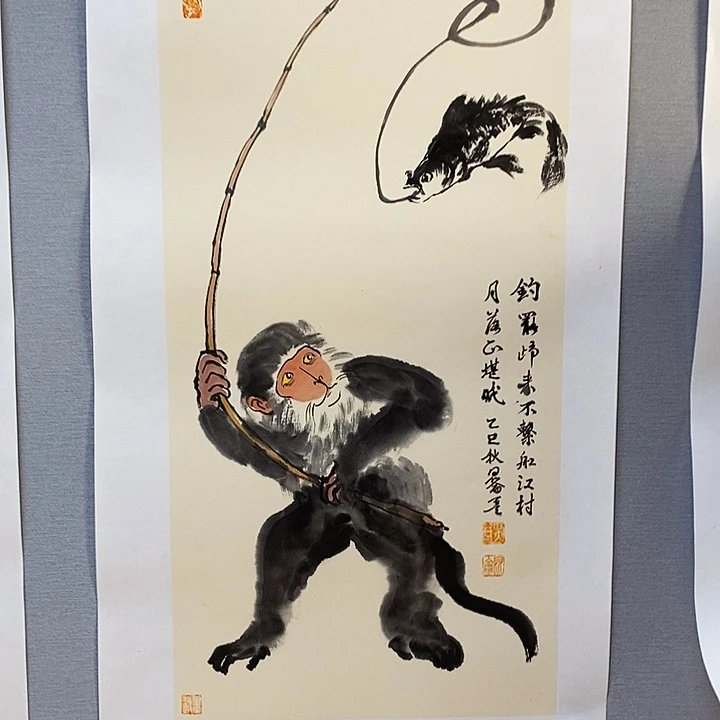 釣罷歸来不繫船江村
月落正堪眠 乙巳秋